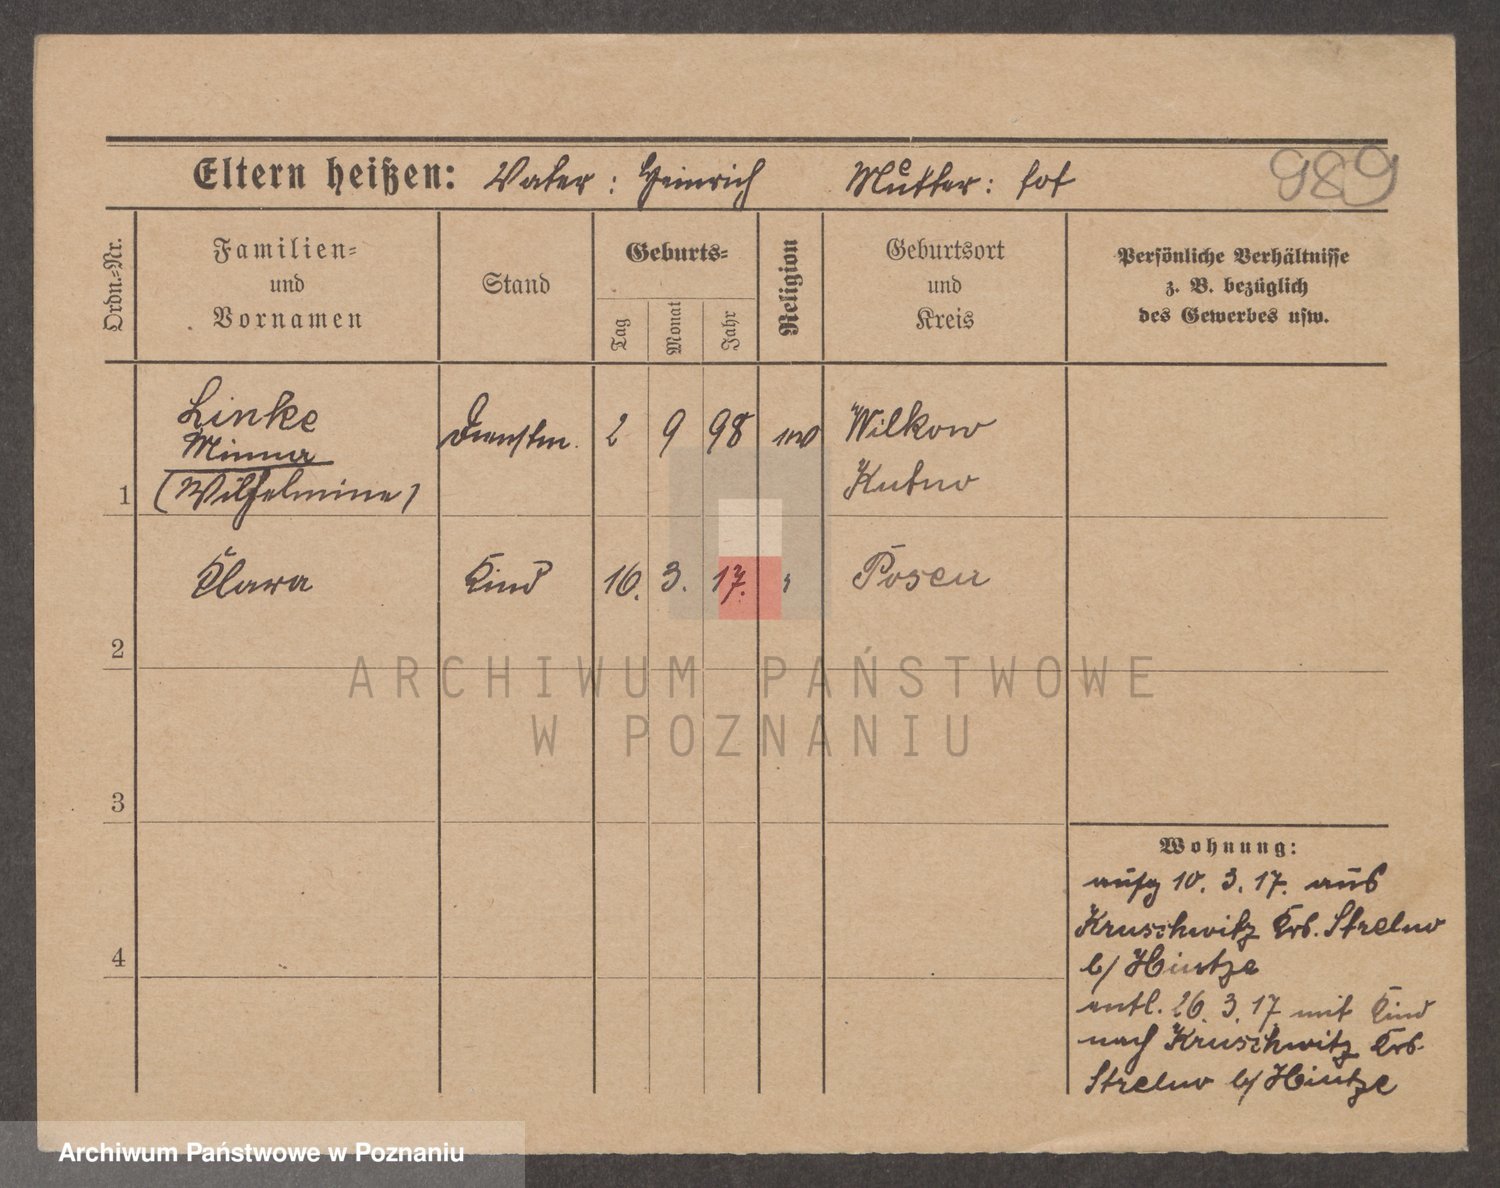 989
Eltern heißen: Vater: Heinrich Mutter: tot
Ordn.-Nr.
Familien-
und
Vornamen
Stand
Geburts-
Tag
Monat
Jahr
Religion
Geburtsort
und
Kreis
Persönliche Verhältnisse
z. B. bezüglich
des Gewerbes usw.
1
Linke
Minna
(Wilhelmine)
Dienstm.
2 9 98
ev
Wilkow
Kutno
2
Klara
Kind
16. 3. 17.
Posen
3
4
Wohnung:
aufg 10. 3. 17. aus
Kruschwitz Krs. Strelno
b/ Hintze
entl. 26. 3. 17 mit Kind
nach Kruschwitz Krs.
Strelno b/ Hintze
ARCHIWUM PAŃSTWOWE
W POZNANIU
Archiwum Państwowe w Poznaniu